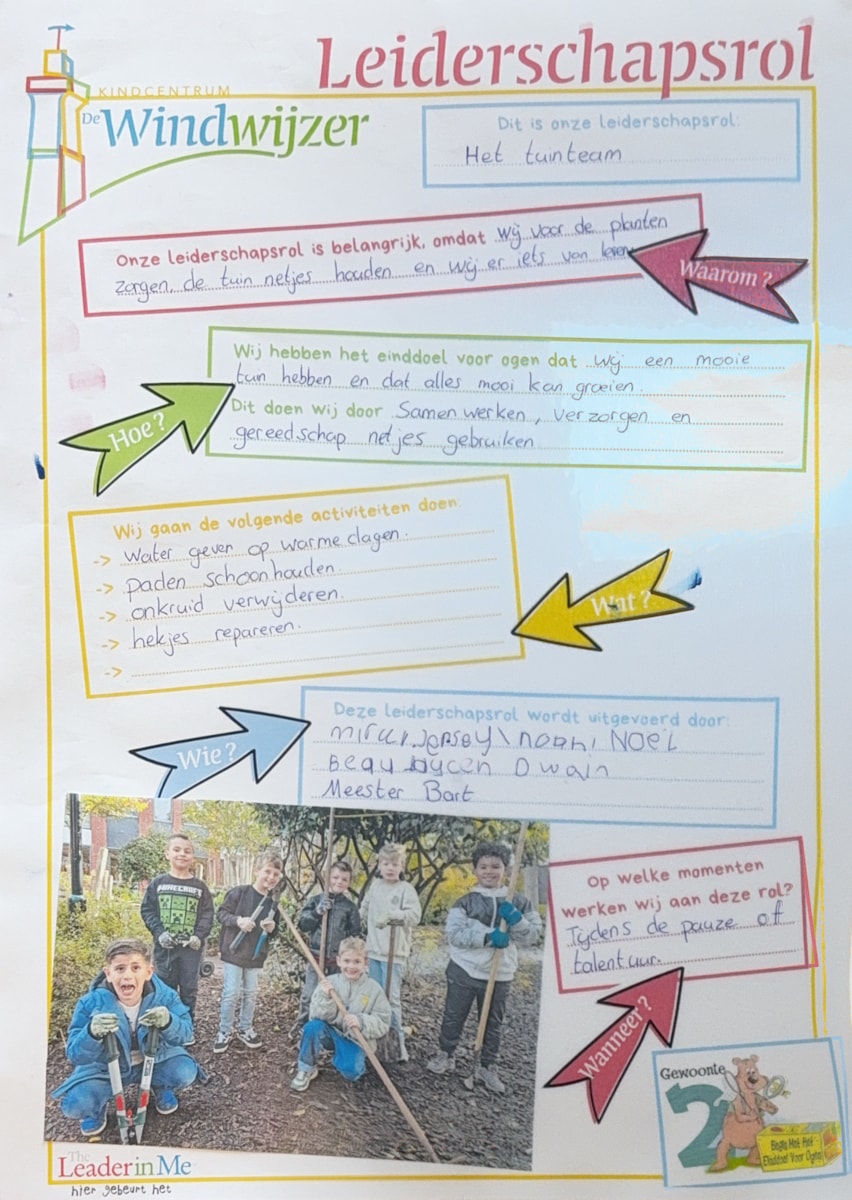 Leiderschapsrol
KINDCENTRUM
De Windwijzer
Dit is onze leiderschapsrol:
Het tuinteam
Onze leiderschapsrol is belangrijk, omdat wij voor de planten
zorgen, de tuin netjes houden en wij er iets van leren
Waarom?
Wij hebben het einddoel voor ogen dat wij een mooie
tuin hebben en dat alles mooi kan groeien.
Hoe?
Dit doen wij door Samenwerken, verzorgen en
gereedschap netjes gebruiken
Wij gaan de volgende activiteiten doen:
-> Water geven op warme dagen.
-> paden schoonhouden.
-> onkruid verwijderen.
-> hekjes repareren.
->
Wat?
Deze leiderschapsrol wordt uitgevoerd door:
Jersey NOEL
Beau Dwain
Meester Bart
Wie?
MINECRAFT
Op welke momenten
werken wij aan deze rol?
Tijdens de pauze of
talentuur.
Wanneer?
Gewoonte
2
Begin Met Het
Einddoel Voor Ogen
The
Leader in Me
hier gebeurt het